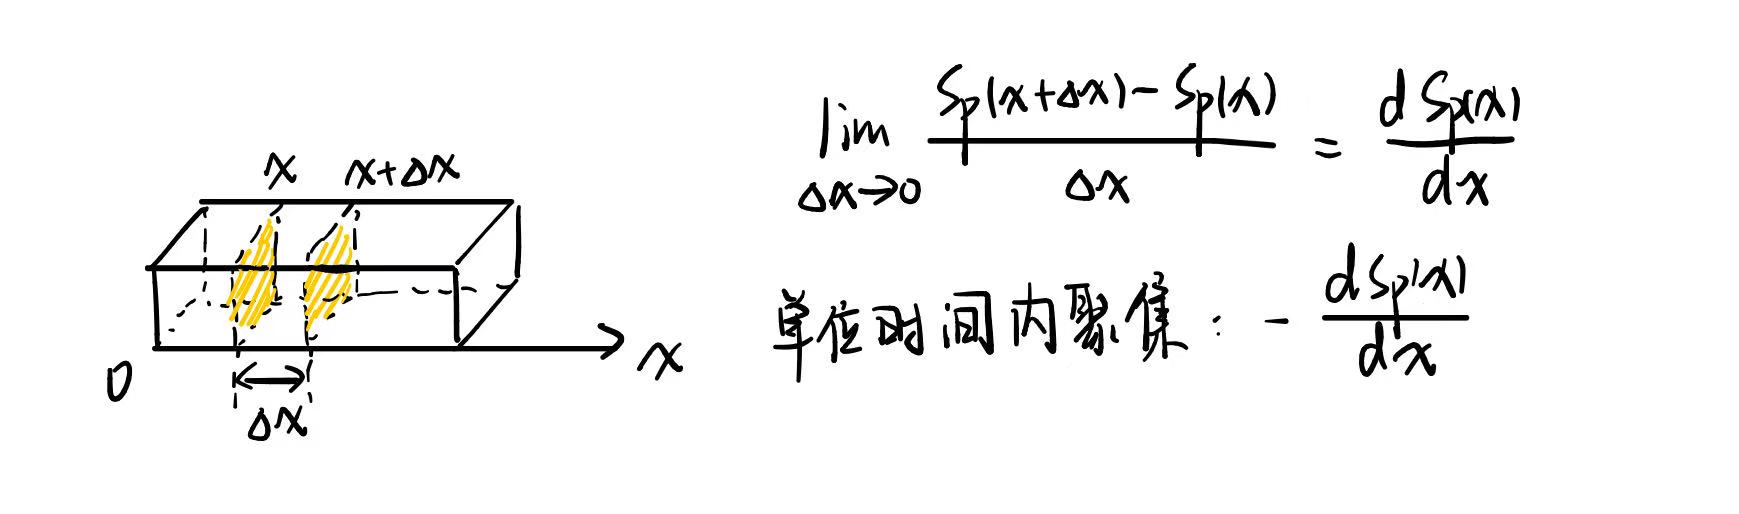 x x+Δx
0 x
Δx
lim Δx→0 (Sp(x+Δx)-Sp(x))/Δx = dSp(x)/dx
单位时间内聚集: - dSp(x)/dx